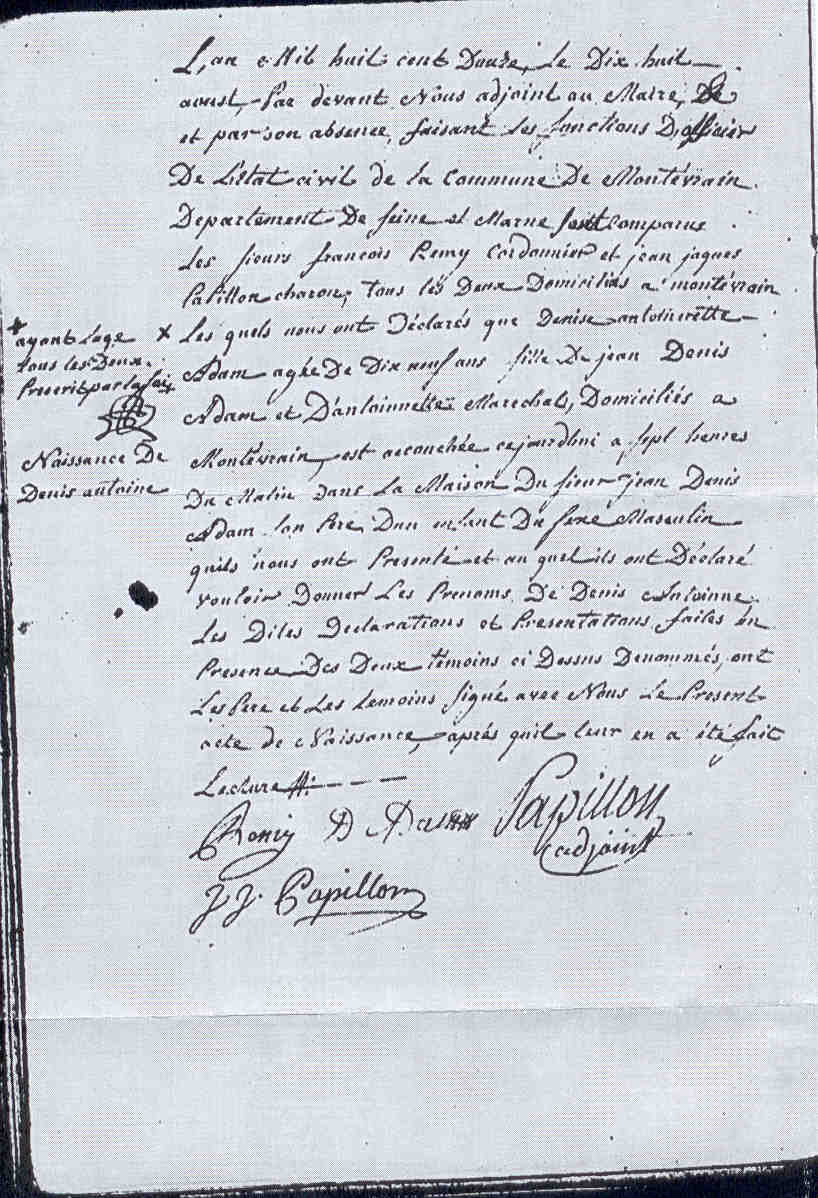 L'an Mil huit cent Douze, le Dix huit
aoust, Par devant Nous adjoint au Maire, De
et par son absence, faisant les fonctions D'officier
De L'état civil de la Commune De Montévrain
Departement De seine et Marne sont comparus
Les sieurs françois Remy Cordonnier et jean jaques
Papillon charon, tous les Deux Domiciliés a montévrain
+ ayant L'age
tous les Deux
Prescrit par la loi
Naissance De
Denis antoine
x Les quels nous ont Déclarés que Denise antoinette
Adam agée De Dix neuf ans fille De jean Denis
Adam et D'antoinnette Marechal, Domiciliés a
Montévrain, est accouchée cejourdhui a sept heures
Du Matin dans La Maison Du sieur jean Denis
Adam son Pere, D'un enfant Du sexe Masculin
quils nous ont Presenté et au quel ils ont Déclaré
vouloir Donner Les Prenoms De Denis Antoinne
Les Dites Declarations et Presentations faites en
Presence Des Deux témoins ci Dessus Denommés, ont
Les Pere et Les temoins signé avec Nous Le Present
acte de Naissance, après quil leur en a été fait
Lecture
Remy D Adam Papillon
adjoint
J J. Papillon